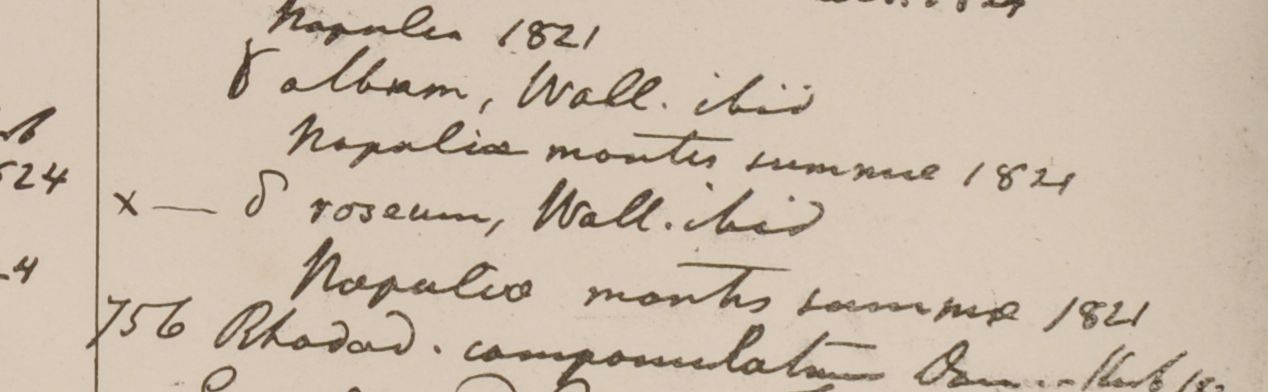 Napalia 1821
γ album, Wall. ibid
Napaliæ montes summæ 1821
x — δ roseum, Wall. ibid
Napaliæ montes summæ 1821
524
756 Rhodod. campanulatum